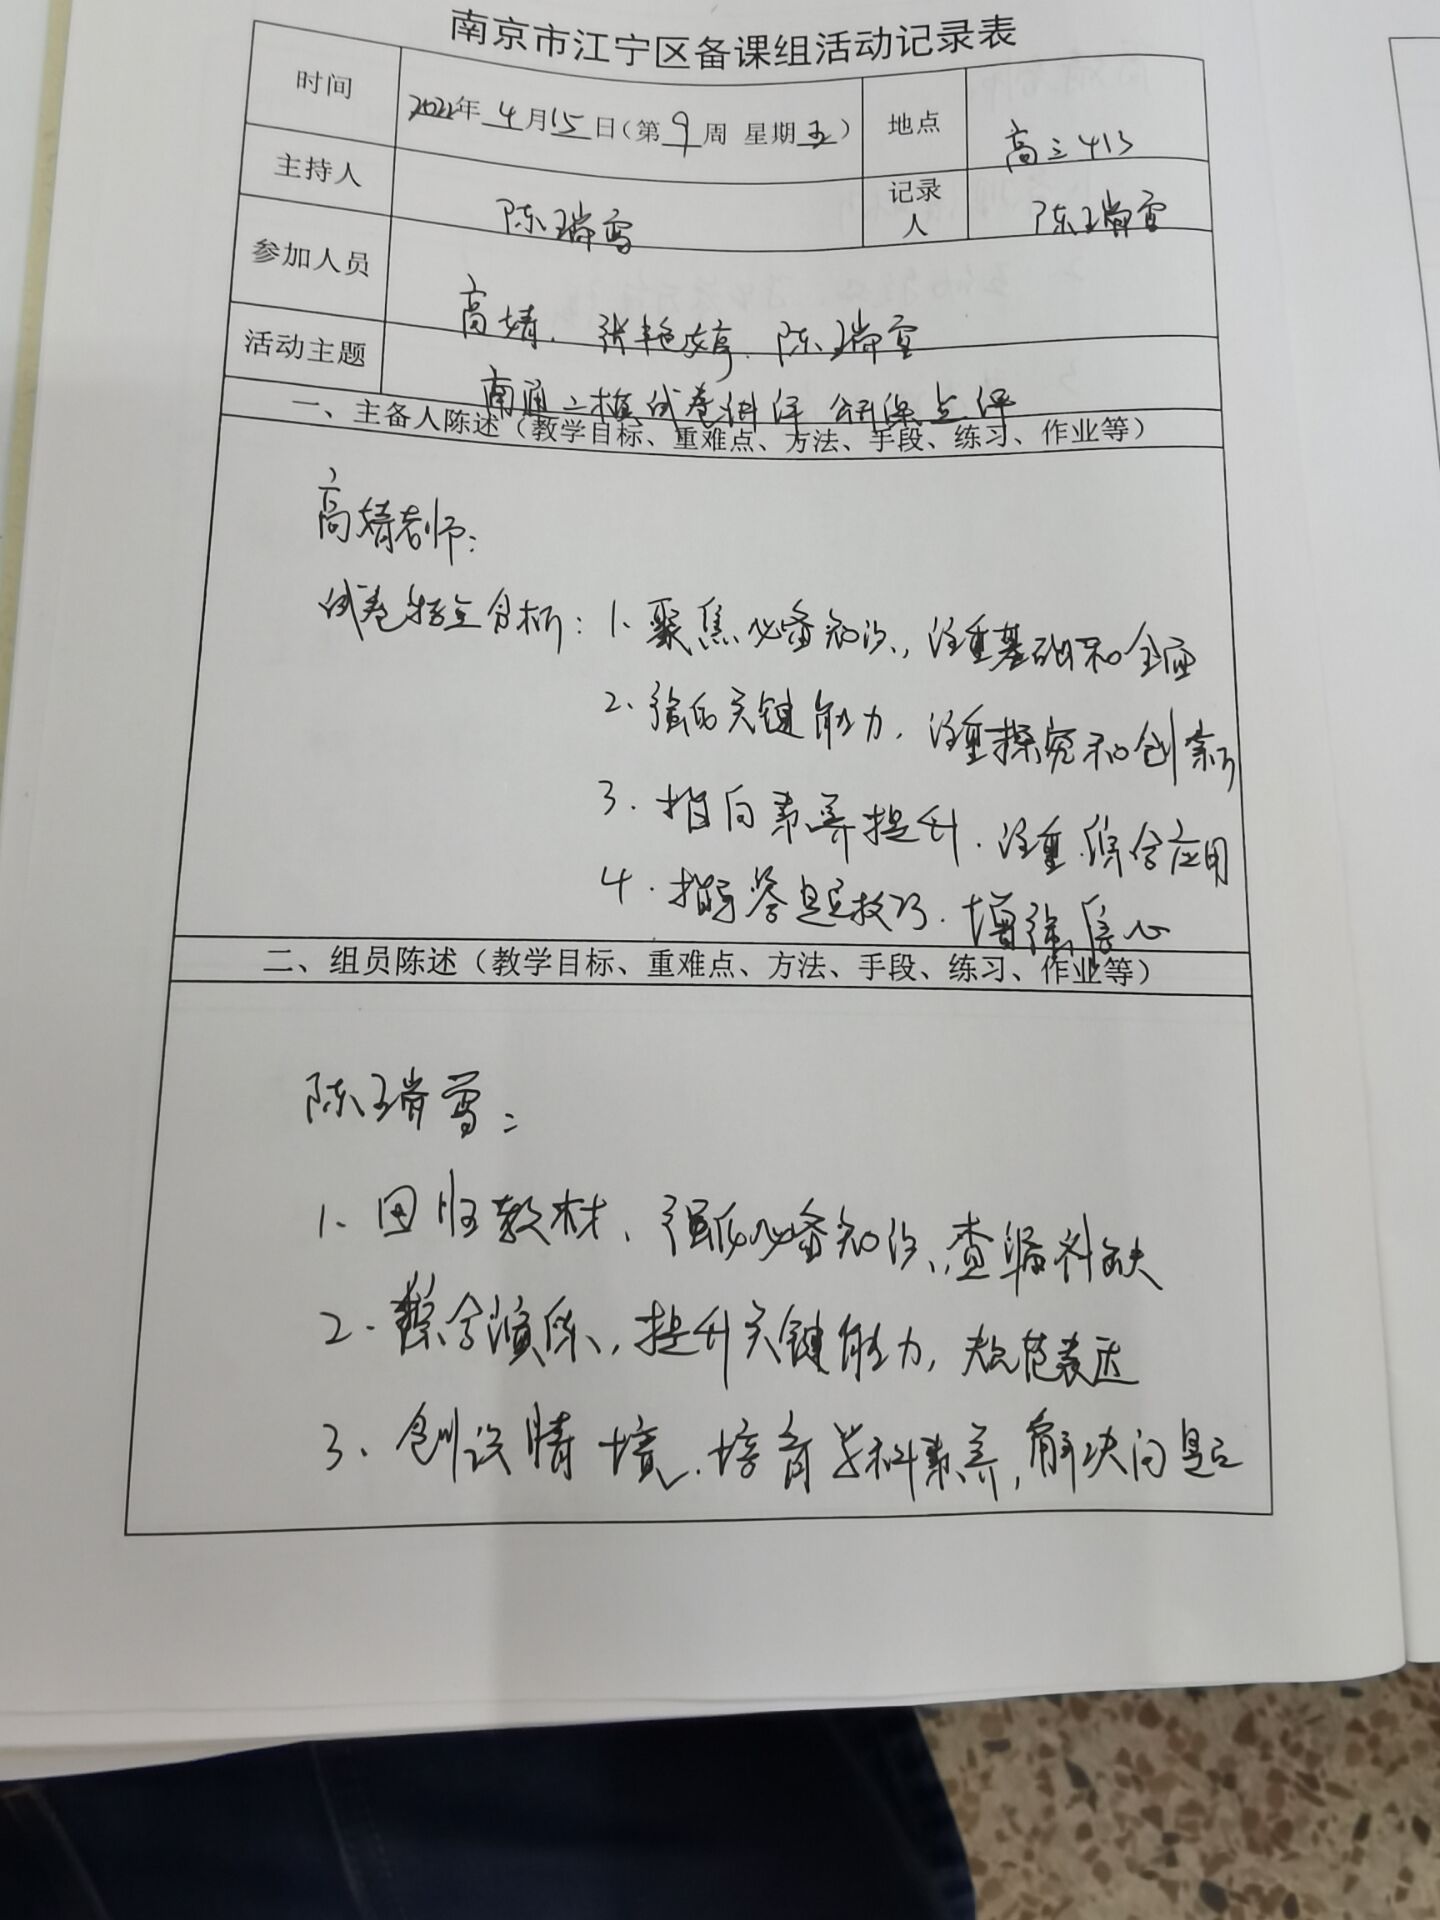 南京市江宁区备课组活动记录表
时间 2022年4月15日(第9周 星期五) 地点 高三413
主持人 陈瑞雪 记录人 陈瑞雪
参加人员 高婧、张艳婷、陈瑞雪
活动主题 南通二模试卷讲评 公开课点评
一、主备人陈述(教学目标、重难点、方法、手段、练习、作业等)
高婧老师:
试卷特点分析:1、聚焦必备知识,注重基础和全面
2、强调关键能力,注重探究和创新
3、指向素养提升,注重综合应用
4、指导答题技巧,增强信心
二、组员陈述(教学目标、重难点、方法、手段、练习、作业等)
陈瑞雪:
1、回归教材,强化必备知识,查漏补缺
2、整合演练,提升关键能力,规范表达
3、创设情境,培育学科素养,解决问题